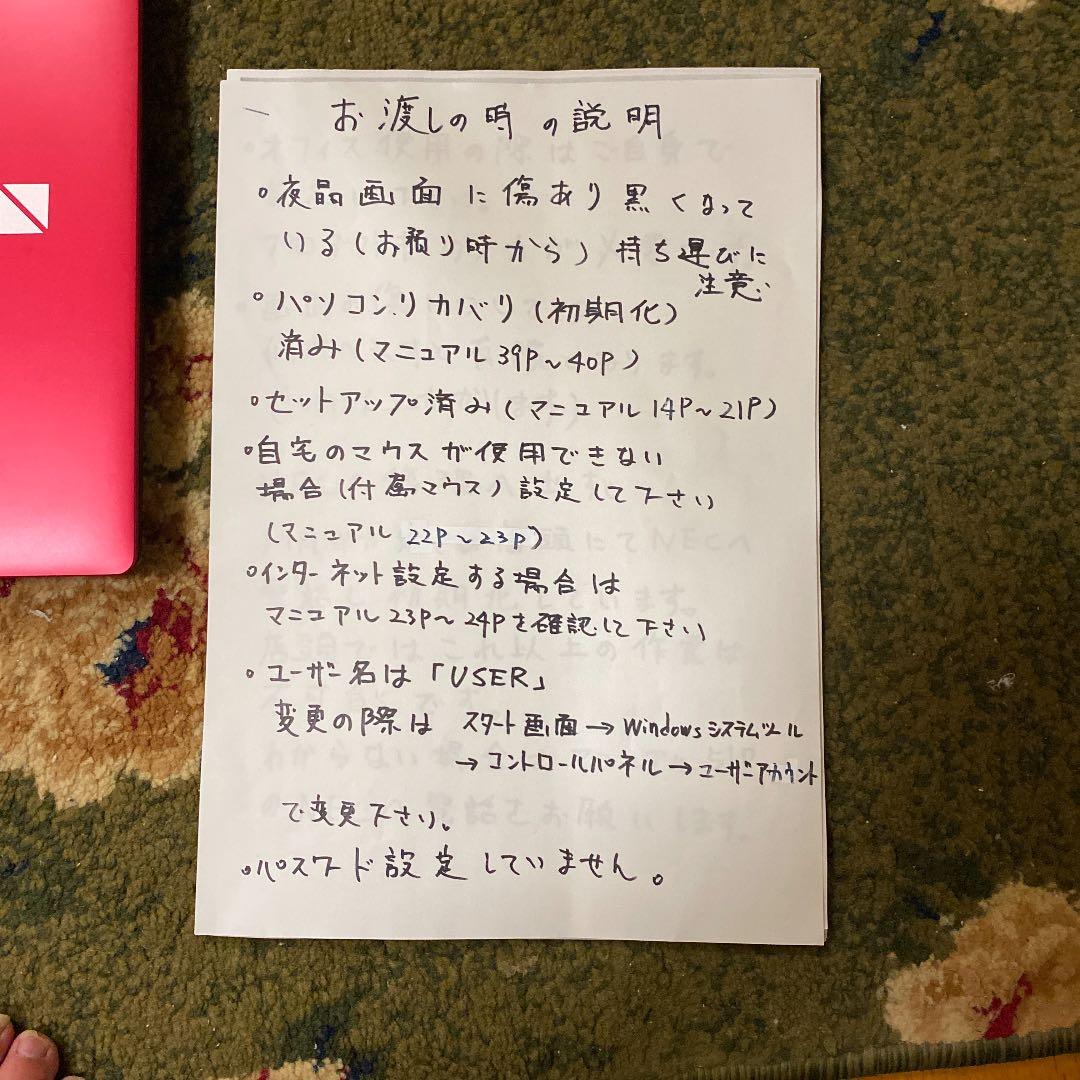 お渡しの時の説明
。液晶画面に傷あり黒くなって
いる(お預り時から)持ち運びに
注意
。パソコンリカバリ(初期化)
済み(マニュアル39P～40P)
。セットアップ済み(マニュアル14P～21P)
。自宅のマウスが使用できない
場合(付属マウス)設定して下さい
(マニュアル22P～23P)
。インターネット設定する場合は
マニュアル23P～24Pを確認して下さい
。ユーザー名は「USER」
変更の際は スタート画面→Windowsシステムツール
→コントロールパネル→ユーザーアカウント
で変更下さい。
。パスワード設定していません。